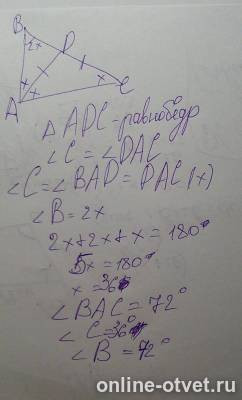 B
2x
D
x
x
x
C
A
Δ ADC - равнобедр
∠C = ∠DAC
∠C = ∠BAD = DAC (x)
∠B = 2x
2x + 2x + x = 180°
5x = 180°
x = 36°
∠BAC = 72°
∠C = 36°
∠B = 72°
online-otvet.ru